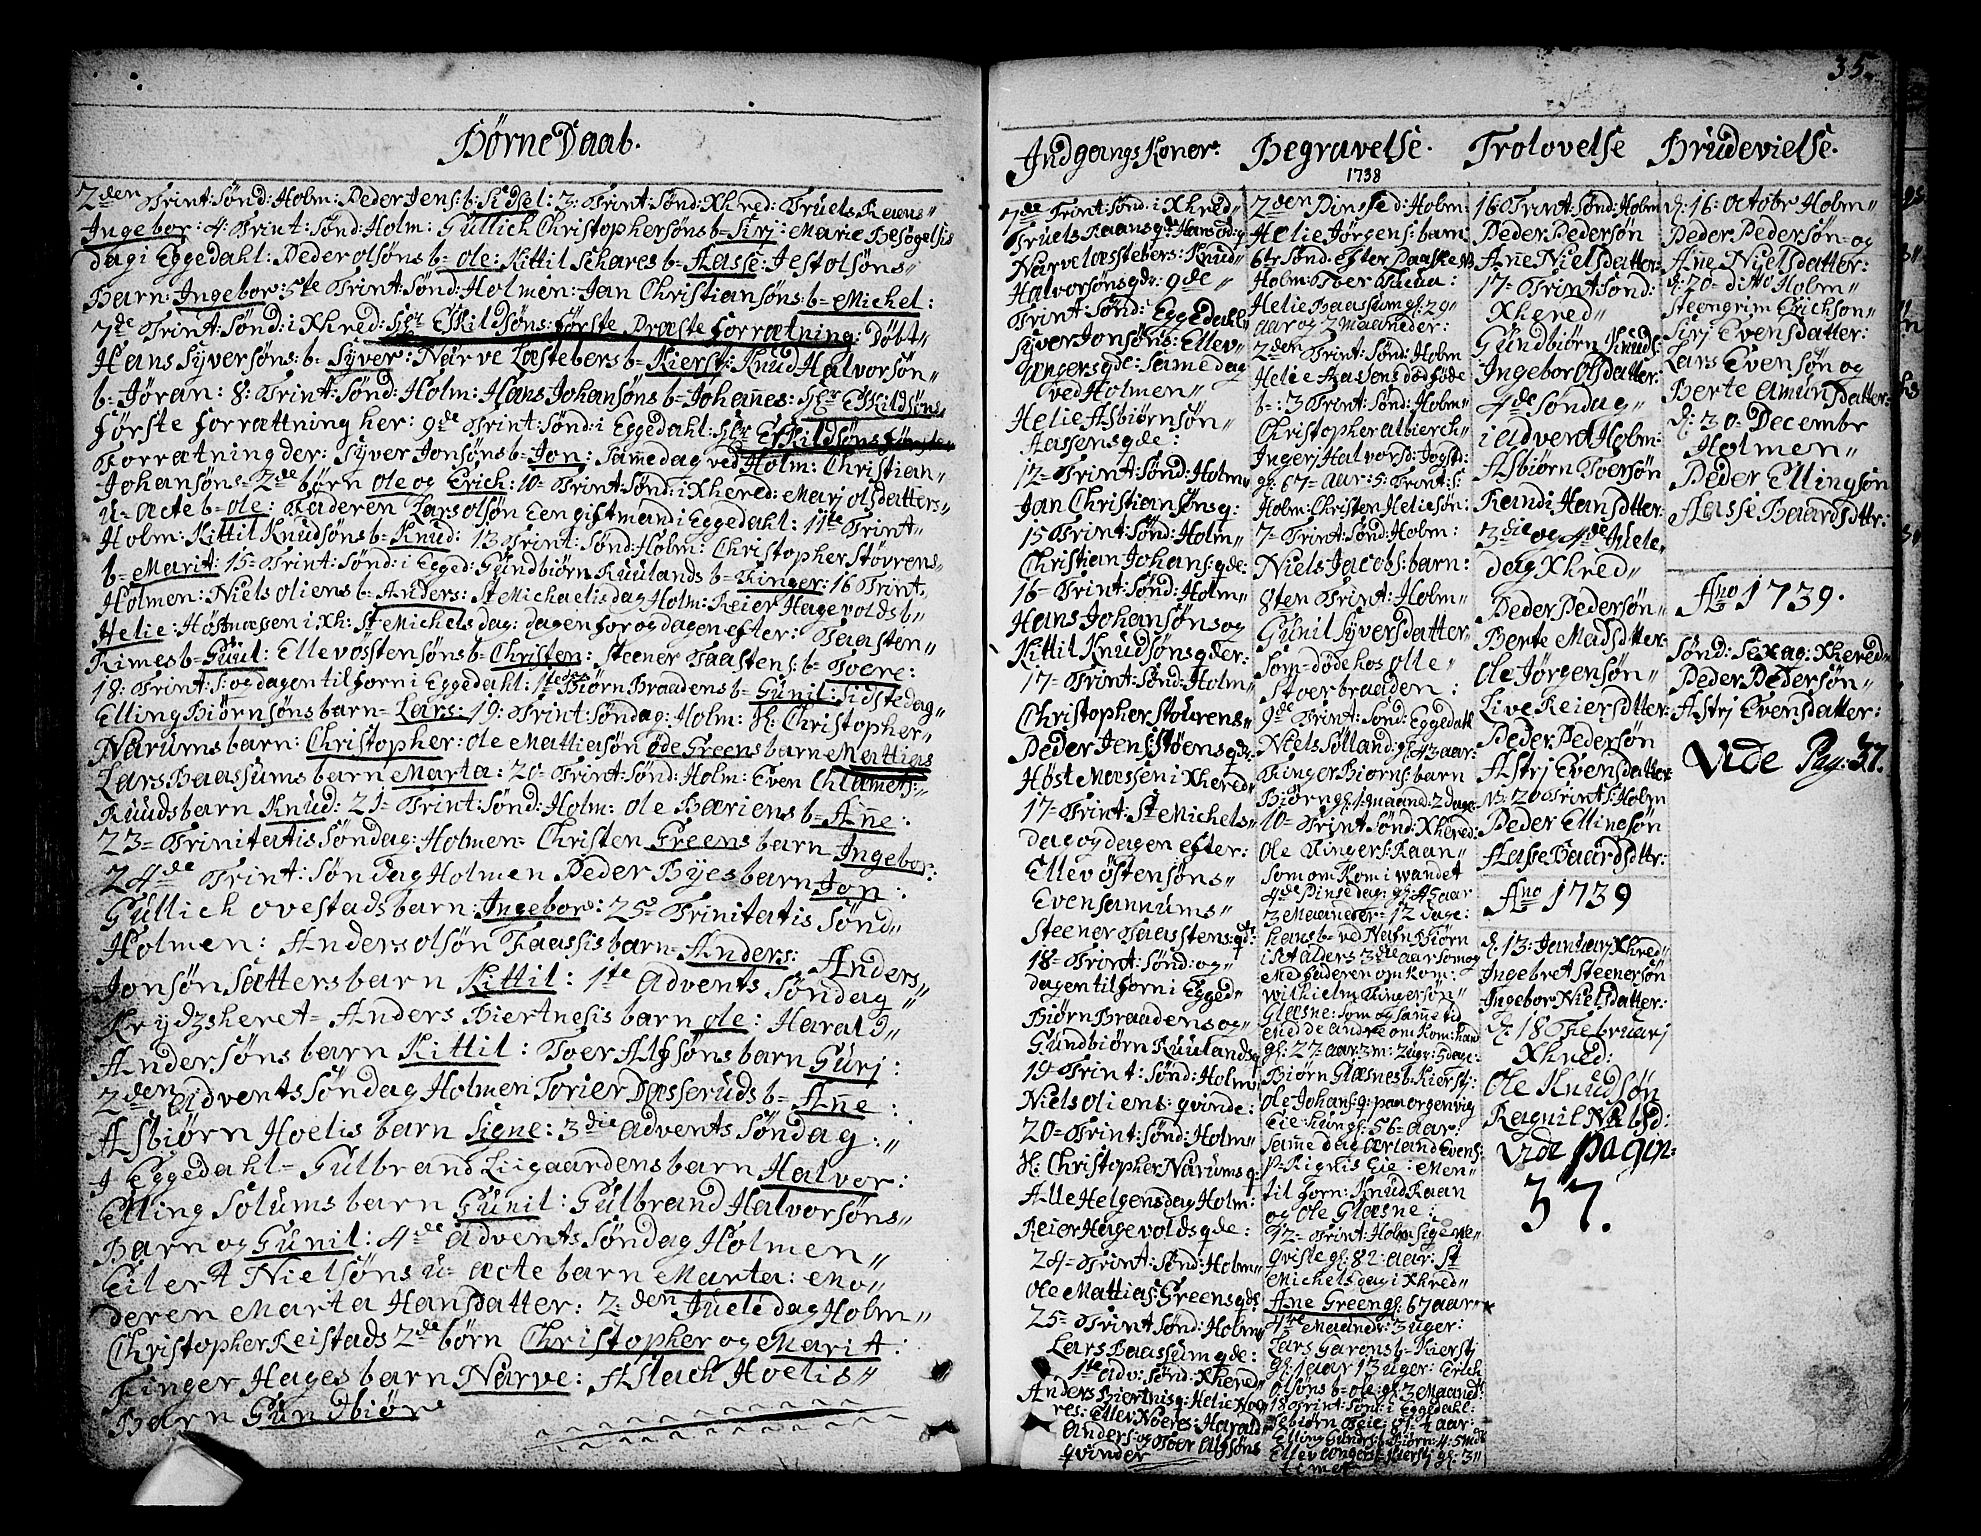 Børne Daab.
2den Trint: Sønd: Holm: Peder Jens: b: Sidsel: 3. Trint: Sønd: Xhred: Truels Reiens"
Ingebor: 4. Trint: Sønd: Holm: Gullich Christophersøns b= Sirj: Marie Besøgelsis
dag i Eggedahl: Peder olsøns b= ole: Kittil Schares b= Aasse: Jest olsøns"
Barn: Ingebor: 5te Trint: Sønd: Holmen: Jan Christiansøns: b= Michel:
7de Trint: Sønd: i Xhred: Hr Eskildsøns: første Præste forrætning: Døbt"
Hans Syversøns: b= Syver: Narve Læstebers b= Kiersti: Knud Halvorsøn"
b= Jøran: 8: Trint: Sønd: Holm: Hans Johansøns b= Johañes: Hr Eskildsøns
første forrættning her: 9de Trint: Sønd: i Eggedahl: Hr Eskildsøns første
Forrætning der: Syver Jonsøns b= Jon: Samedag ved Holm: Christian"
Johansøns= 2de børn ole og Erich: 10= Trint: Sønd: i Xhered: Marj olsdatters"
u= ækte b= ole: Faderen Lars olsøn Een giftmand i Eggedahl: 11te Trint"
Holm: Kittil Knudsøns b= Knud: 13 Trint: Sønd: Holm: Christopher Størrens"
b= Marit: 15= Trint: Sønd: i Egged: Gundbiørn Ruulands b= Finger: 16 Trint"
Holmen: Niels oliens b= Anders: St Michaelis dag Holm: Reier Hagevolds b"
Helie: Høstmæssen i Xh: St Michels dag: dagen for og dagen efter: Taasten"
Rimes b= Guul: Ellev østensøns b= Christen: Steener Taastens: b= Toere:
18: Trint: S: og dagen til forn i Eggedahl: 1te dag Biørn Braadens b= Gunil: Sidste dag"
Elling Biørnsøns barn= Lars: 19: Trint: Søndag: Holm: H: Christopher"
Narums barn: Christopher: ole Mathiasøn øde Greens barn Mattias
Lars Baassums barn Marta: 20= Trint: Sønd: Holm: Even Chlamets:"
Ruuds barn Knud: 21= Trint: Sønd: Holm: ole Bæriens b= Añe:
23= Trinitatis Søndag: Holmen= Christen Greens barn Ingebor:
24de Trint: Søndag Holmen Peder Byes barn Jon:
Gullich ovestads barn: Ingebor: 25= Trinitatis Sønd"
Holmen: Anders olsøn Faassis barn= Anders: Anders"
Jonsøn Sætters barn Kittil: 1te Advents Søndag"
Krydzsheret= Anders Biertnesis barn ole: Harald"
Andersøns barn Kittil: Toer Alfsøns barn Gurj:
2den Advents Søndag Holmen Torier Dasseruds b= Añe:
Asbiørn Hoelis barn Signe: 3die advents Søndag:"
J Eggedahl= Gulbrand Liigaardens barn Halvor:
Elling Solums barn Gunil: Gulbrand Halvorsøns"
Barn og Gunil: 4de advents Søndag Holmen"
Eilert Nielsøns u= ækte barn Marta: Mo"
deren Marta Hansdatter: 2den Juele dag Holm"
Christopher Reistads 2de børn Christopher og Marit:
Finger Hages barn Narve: Aslach Hoelis"
Barn Gundbiør
35.
Indgangs Koner:
7de Trint: Sønd: i Xhred"
Truels Raans q: Hans ød: q
Narve læstebers: Knud"
Halvorsøns qdr: 9de"
Trint: Sønd: Eggedahl"
Syver Jonsøns: Ellev"
Ungers qde: Samedag
ved Holmen"
Helie Asbiørnsøn"
Aassens qde:
12= Trint: Sønd: Holm"
Jan Christiansøns q:
15 Trint: Sønd: Holm"
Christian Johans: qde:
16= Trint: Sønd: Holm"
Hans Johansøns og
Kittil Knudsøns qder:
17= Trint: Sønd: Holm"
Christopher Stourens"
Peder Jens: Støens qdr
Høst Messen i Xhered"
17= Trint: St Michels"
dag og dagen efter:
Ellev østensøns"
Even Sannums"
Steener Taastens: qdr
18= Trint: Sønd: og"
dagen til forn i Egged"
Biørn Braadens og"
Gundbiørn Ruulands q
19= Trint: Sønd: Holm"
Niels oliens: qvinde:
20= Trint: Sønd: Holm"
H: Christopher Narums q:
Alle Helgens dag Holm:
Reier Hagevolds qde:
24= Trint: Sønd: Holm"
ole Mattias: Greens qdr
25= Trint: Sønd: Holm"
Lars Baassum qde:
1te adv: Sønd: Xhered"
Anders Biertnis q: Helie Nor
res: Ellev Noeres: Harald
Anders: og Toer Alfsøns
qvinder
Begravelse.
1738
2den Pinsed: Holm:
Helie Jørgens: barn
6te Sønd: efter Paaske
Holm: Toer Tiuua:
Helie Baassum gl: 29"
aar og 2 Maaneder:
2den Trint: Sønd: Holm
Helie Aassens dødføde
b=: 3 Trint: Sønd: Holm"
Christopher albierch"
Ingerj Halvorsd: Jogstd:
gl: 67= aar: 5: Trint: S:
Holm: Christen Heliesøn:
7= Trint: Sønd: Holm:
Niels Jacobs: barn:
8ten Trint: Holm"
Gunil Syversdatter
Som døde hos olle"
Stoerbraaden:
9de Trint: Sønd: Eggedahl
Niels Sølland: gl: 43 aar:
Finger Biørns: barn
Biørn gl: 1: maaned: 2 dage:
10= Trint: Sønd: Xhered:
Ole Fingers: Raan"
som om Kom i wandet
4de Pinsedag: gl: 45 aar
3 Maaneder= 12 dage:
hans b= ved Nafn Biørn
i sit alders 3die aar som og
Med faderen om kom:
Wilhielm Fingersøn"
Glæsne: som og samme tid
gl: 27= aar 3m: 2 ugr: 5 dage:
Biørn Glæsnes b= Kiersti:
gl: 56= aar:
til forn: Knud Raan
og ole Glæsne:
gl: 82: aar: St
Michels dag i Xhred"
Ane Green gl: 67 aar"
4re Maandr: 3 uger:
Lars Garons b= Kiersti
gl: 1 aar 13 uger: Erich
olsøns b= ole: gl: 3 Maand:
18 Trint: Sønd: i Eggedahl:
Trolovelse
16 Trint: Sønd: Holm
Peder Pedersøn
Añe Nielsdatter:
17= Trint Sønd:
Xhered"
Gundbiørn Knuds:
Ingebor Olsdatter:
4de Søndag"
i advent Holm:
Asbiørn Toersøn
Randi Hansdtter:
3die og 4de Juele"
dag Xhred"
Peder Pedersøn"
Berte Madsdtter:
Ole Jørgensøn:
Live Reiersdtter:
Peder Pedersøn
Astrj Evensdatter
N: 20 Trint: S: Holm
Peder Ellingsøn
Aasse Baardsdtr:
Año 1739
d: 13: Januarj Xhred"
Ingebret Steenersøn
Ingebor Nielsdatter:
d: 18 Februarj
Xhred:
Ole Knudsøn
Ragnil Nabsd:
Vide pagin:
37.
Brudevielse.
d: 16: octobr Holm"
Peder Pedersøn= og
Añe Nielsdatter:
d: 20= ditto Holm"
Steengrim Erichson"
Syrj Evensdatter:
Lars Evensøn og
Berte Amunsdatter:
d: 30= Decembr
Holmen"
Peder Ellingsøn
Aasse Baardsdtr:
Año 1739.
Sønd: Sexag: Xhered"
Peder Pedersøn"
Astrj Evensdatter:
Vide Pag: 37.